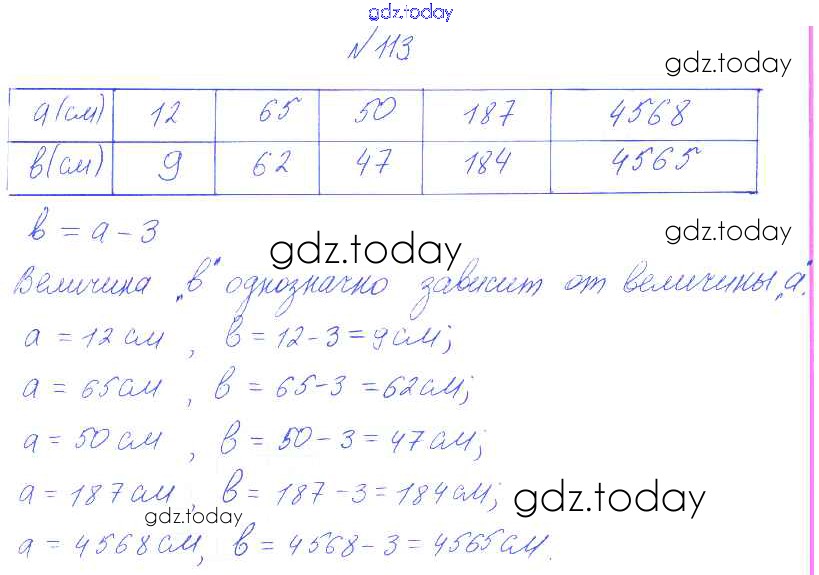 gdz.today
№113
gdz.today
a(см) 12 65 50 187 4568
в(см) 9 62 47 184 4565
в = a - 3
gdz.today
gdz.today
Величина „в" однозначно зависит от величины „a".
a = 12 см , в = 12-3 = 9см;
a = 65см , в = 65-3 = 62см;
a = 50 см , в = 50-3 = 47см;
a = 187см , в = 187-3 = 184см;
gdz.today
gdz.today
a = 4568см, в = 4568-3 = 4565см.